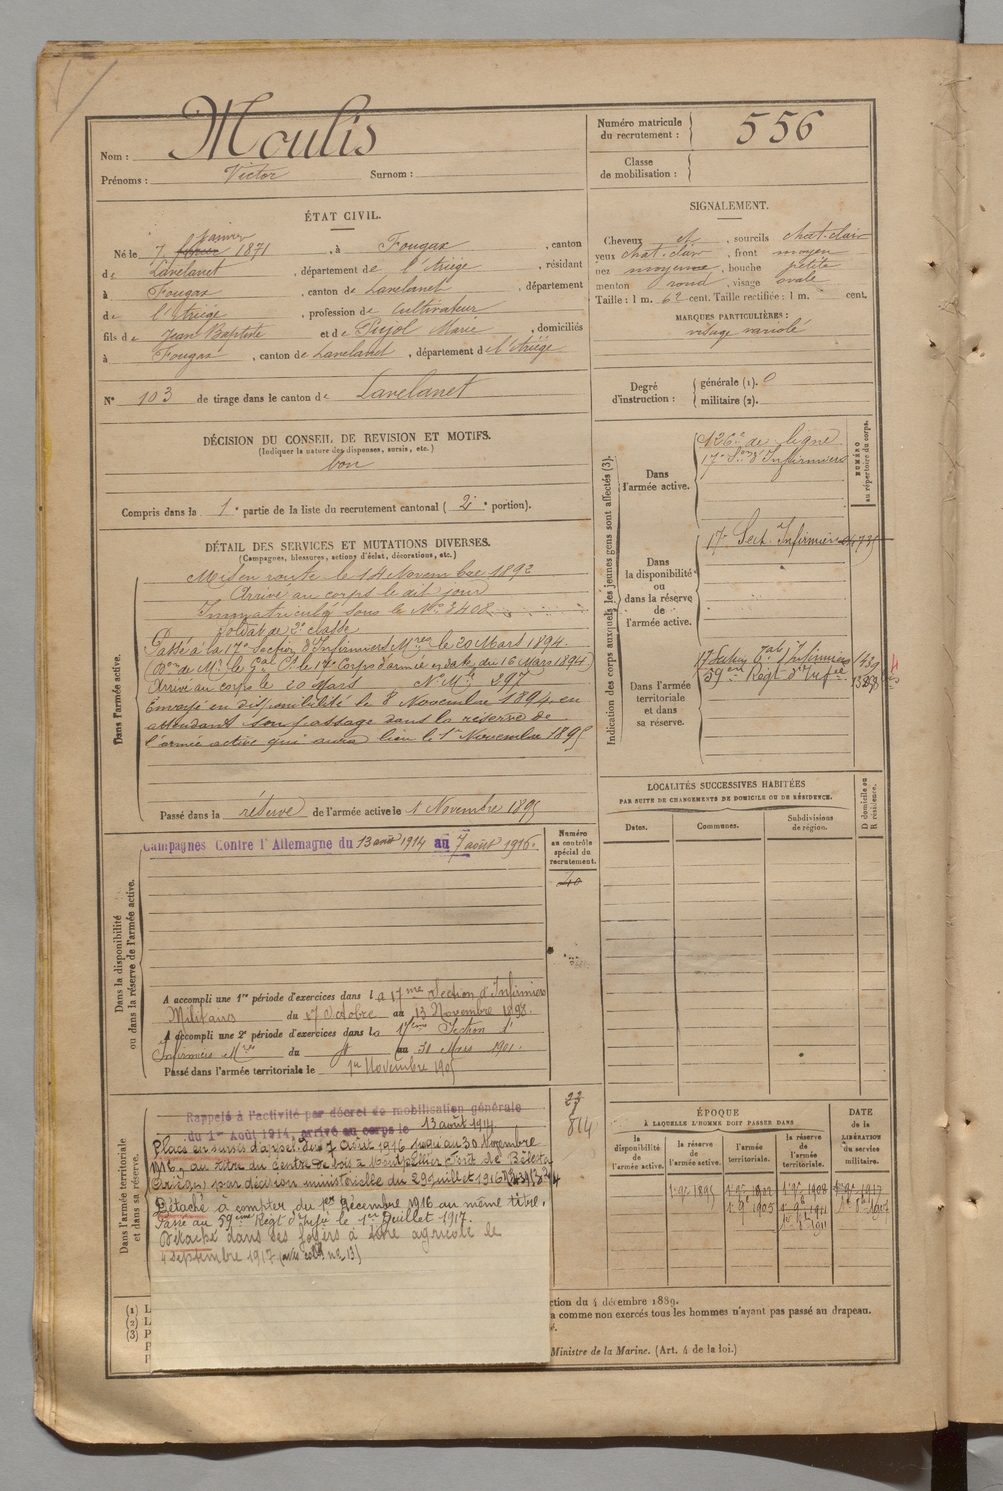 Nom : Moulis
Prénoms : Victor Surnom :
Numéro matricule du recrutement : 556
Classe de mobilisation :
ÉTAT CIVIL.
Né le 7 janvier 1871, à Fougax, canton
de Lavelanet, département de l'Ariège, résidant
à Fougax, canton de Lavelanet, département
de l'Ariège, profession de Cultivateur
fils de Jean Baptiste et de Pujol Marie, domiciliés
à Fougax, canton de Lavelanet, département de l'Ariège
N° 103 de tirage dans le canton de Lavelanet
SIGNALEMENT.
Cheveux et, sourcils chat-clair
yeux chat-clair, front moyen
nez moyenne, bouche petite
menton rond, visage ovale
Taille : 1 m. 62 cent. Taille rectifiée : 1 m. cent.
MARQUES PARTICULIÈRES :
visage variolé
Degré d'instruction : générale (1). 0
militaire (2).
DÉCISION DU CONSEIL DE REVISION ET MOTIFS.
(Indiquer la nature des dispenses, sursis, etc.)
bon
Compris dans la 1e partie de la liste du recrutement cantonal (2e portion).
DÉTAIL DES SERVICES ET MUTATIONS DIVERSES.
(Campagnes, blessures, actions d'éclat, décorations, etc.)
Dans l'armée active.
Mis en route le 14 Novembre 1892
Arrivé au corps le dit jour
Immatriculé sous le N° 2408
soldat de 2e classe
Passé à la 17e Section d'Infirmiers Mres le 20 Mars 1894.
(Don de Mr le Gal Ct le 17e Corps d'armée en date du 16 Mars 1894)
Arrivé au corps le 20 Mars N° Mle 297
Envoyé en disponibilité le 8 Novembre 1894 en
attendant son passage dans la réserve de
l'armée active qui aura lieu le 1er Novembre 1895
Passé dans la réserve de l'armée active le 1 Novembre 1895
Indication des corps auxquels les jeunes gens sont affectés (3).
NUMÉRO au répertoire du corps.
Dans l'armée active.
126e de ligne
17e Son d'Infirmiers
Dans la disponibilité ou dans la réserve de l'armée active.
17e Sect. Infirmiers
Dans l'armée territoriale et dans sa réserve.
17 Section Infirmiers
59e Régt d'Infie
LOCALITÉS SUCCESSIVES HABITÉES
PAR SUITE DE CHANGEMENTS DE DOMICILE OU DE RÉSIDENCE.
Dates. Communes. Subdivisions de région. D domicile ou R résidence.
Dans la disponibilité ou dans la réserve de l'armée active.
Campagnes Contre l'Allemagne du 13 août 1914 au 7 août 1916.
Numéro au contrôle spécial du recrutement.
40
A accompli une 1re période d'exercices dans la 17me Section d'Infirmiers
Militaires du 17 Octobre au 13 Novembre 1898.
A accompli une 2e période d'exercices dans la 17ème Section d'
Infirmiers Mres du 4 au 31 Mars 1901.
Passé dans l'armée territoriale le 1er Novembre 1905
Dans l'armée territoriale et dans sa réserve.
Rappelé à l'activité par décret de mobilisation générale
du 1er Août 1914, arrivé au corps le 13 août 1914
814
Placé en sursis d'appel du 7 Août 1916 jusqu'au 30 Novembre
1916, au titre du Centre de bois à Montpellier Forêt de Bélesta
Ariège, par décision ministérielle du 29 juillet 1916
Détaché à compter du 1er Décembre 1916 au même titre.
Passé au 59ème Régt d'Infie le 1er Juillet 1917.
Détaché dans ses foyers à titre agricole le
4 septembre 1917
ÉPOQUE
À LAQUELLE L'HOMME DOIT PASSER DANS
la disponibilité de l'armée active. la réserve de l'armée active. l'armée territoriale. la réserve de l'armée territoriale.
DATE de la LIBÉRATION du service militaire.
1er 9e 1895
(1) L
(2) L
(3) P
ction du 4 décembre 1889.
a comme non exercés tous les hommes n'ayant pas passé au drapeau.
Ministre de la Marine. (Art. 4 de la loi.)